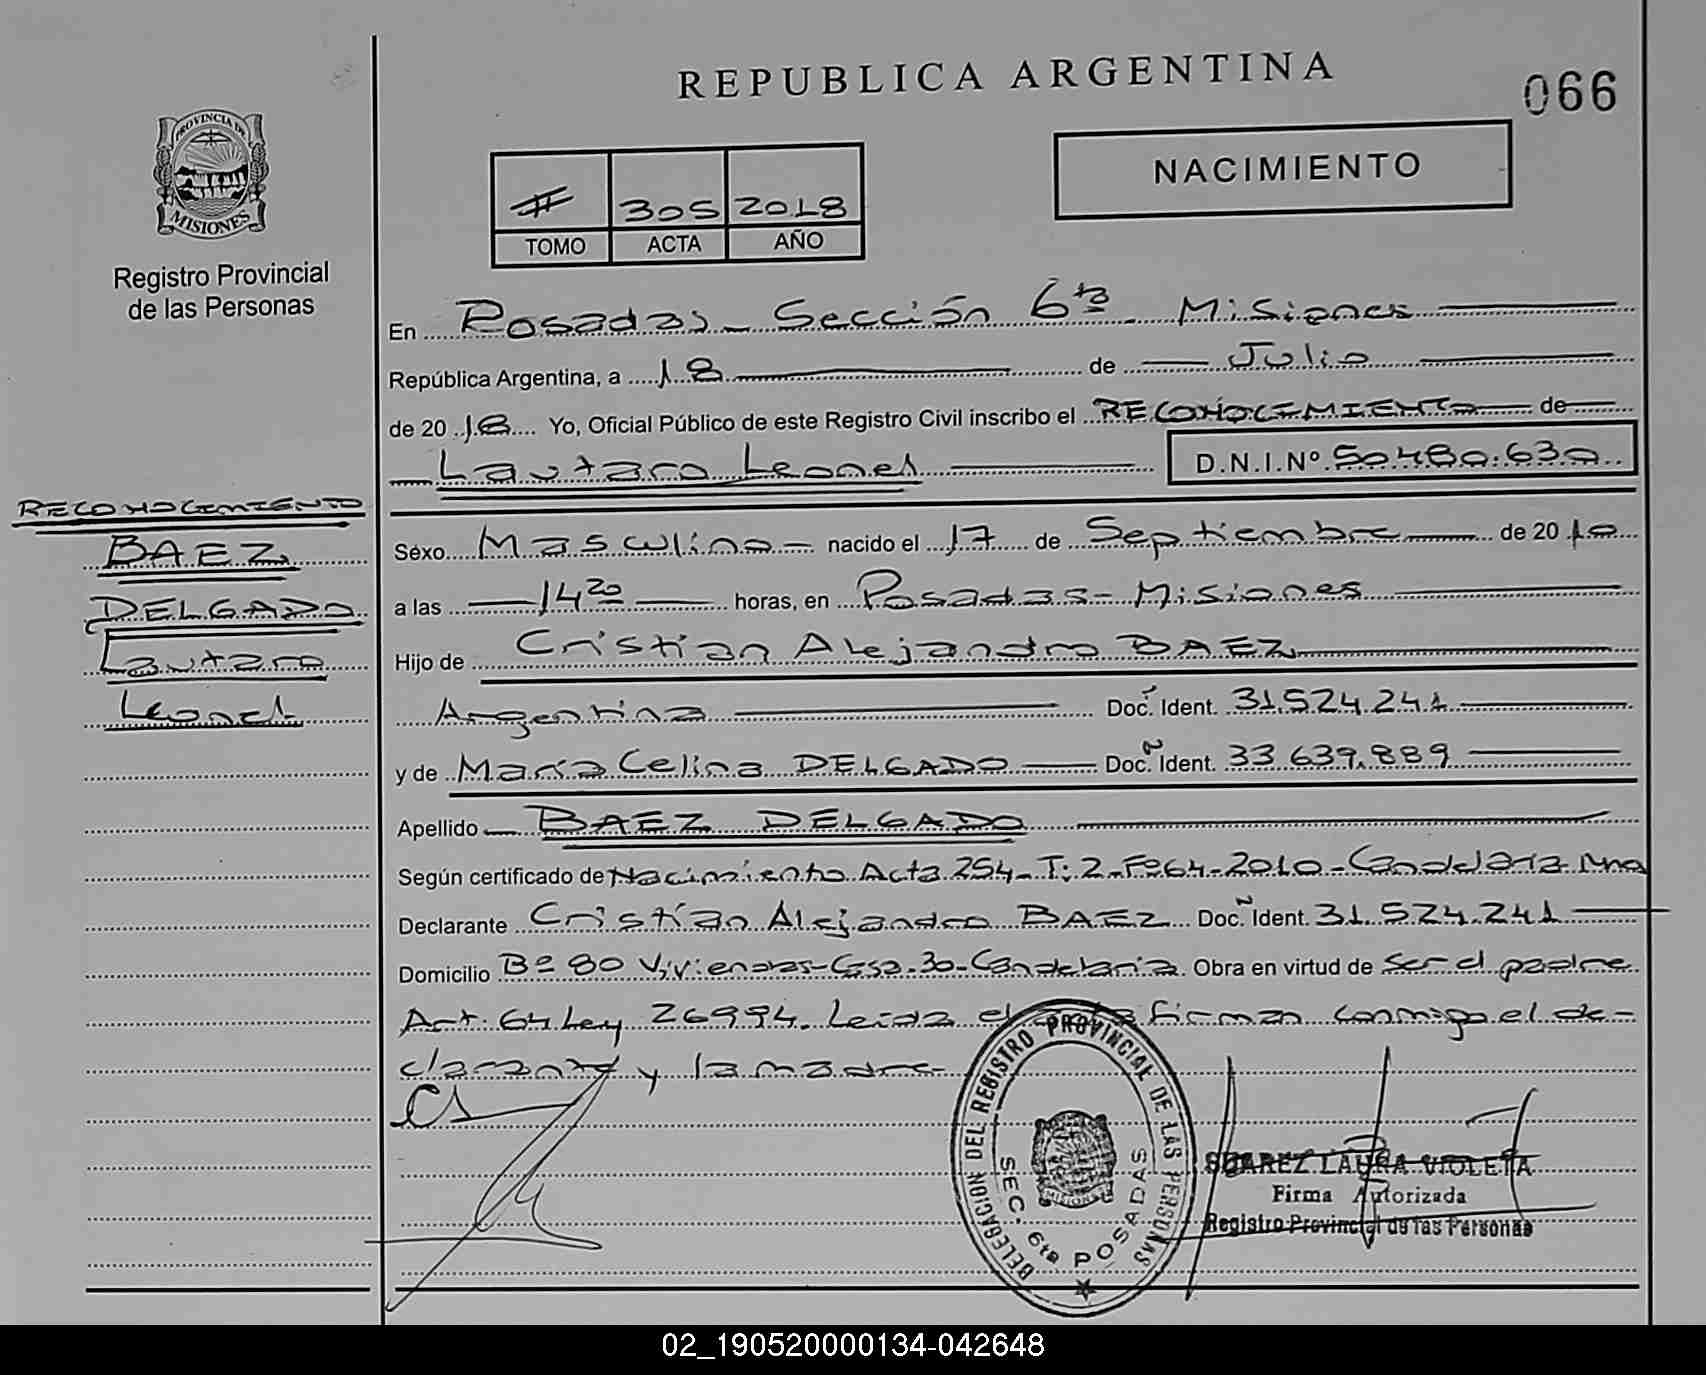 REPUBLICA ARGENTINA
066
PROVINCIA DE
MISIONES
Registro Provincial
de las Personas
NACIMIENTO
305 2018
TOMO ACTA AÑO
En Posadas - Sección 6ta - Misiones
República Argentina, a 18 de Julio
de 2018 Yo, Oficial Público de este Registro Civil inscribo el RECONOCIMIENTO de
Lautaro Leonel D.N.I.Nº 50.480.630
RECONOCIMIENTO
BAEZ
DELGADO
Lautaro
Leonel
Sexo Masculino nacido el 17 de Septiembre de 2010
a las 14 20 horas, en Posadas - Misiones
Hijo de Cristian Alejandro BAEZ
Argentina Doc. Ident. 31.524.241
y de María Celina DELGADO Doc. Ident. 33.639.889
Apellido BAEZ DELGADO
Según certificado de Nacimiento Acta 254 - T: 2 - Fº64 - 2010 - Candelaria Mnes
Declarante Cristian Alejandro BAEZ Doc. Ident. 31.524.241
Domicilio Bº 80 Viviendas - Csa. 30 - Candelaria. Obra en virtud de ser el padre
Art. 64 Ley 26994. Leída el acta firman conmigo el de-
clarante y la madre-
DELEGACION DEL REGISTRO PROVINCIAL DE LAS PERSONAS
SEC. 6ta POSADAS
SUAREZ LAURA VIOLETA
Firma Autorizada
Registro Provincial de las Personas
02_190520000134-042648